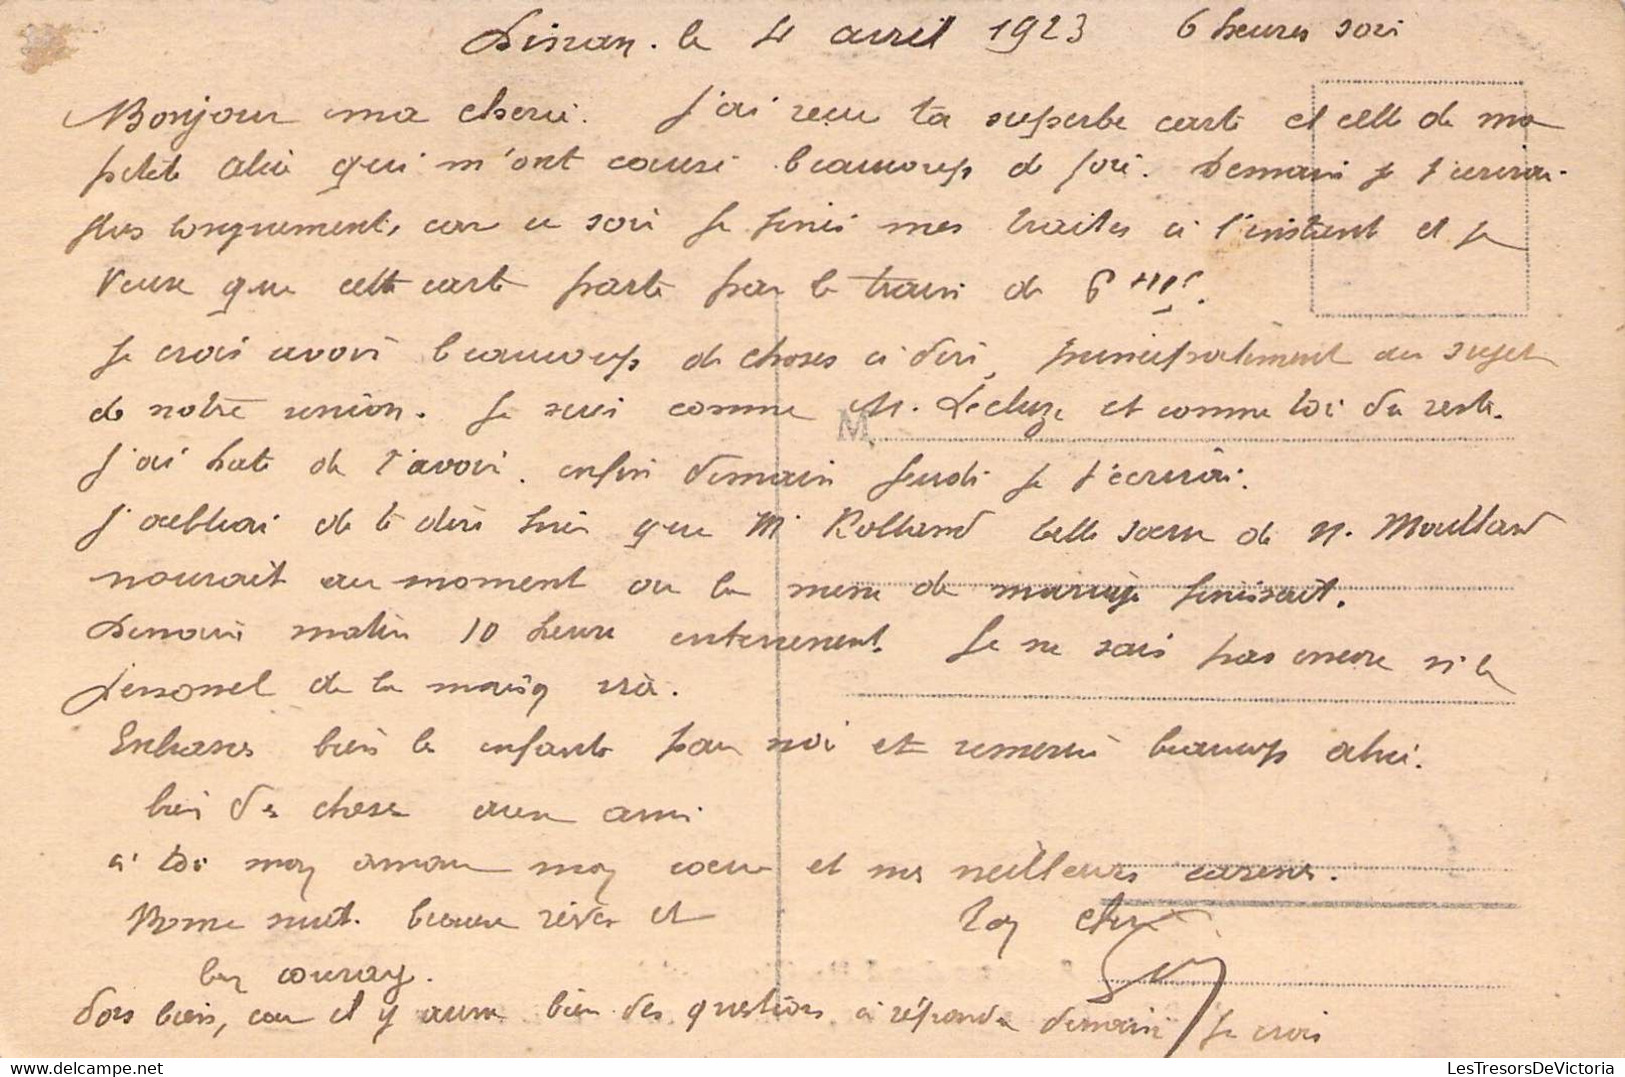 Dinan. le 4 avril 1923 6 heures soir
Bonjour ma cherie. J'ai recu ta superbe carte et celle de ma
petite Alice qui m'ont causé beaucoup de joie. Demain je t'ecrirai
plus longuement, car ce soir je finis mes traites à l'instant et je
veux que cette carte parte par le train de 6
Je crois avoir beaucoup de choses à dire, principalement au sujet
de notre union. Je suis comme M. Lecluze et comme toi du reste.
J'ai hate de t'avoir. enfin demain jeudi je t'écrirai.
J'oubliai de te dire que M Rolland belle sœur de M. Moullard
mourait au moment ou la messe de mariage finissait.
Demain matin 10 heure enterrement. Je ne sais pas encore si le
personel de la maison ira.
Embrasses bien les enfants pour moi et remercie beaucoup alice.
bien des choses aux amis
à toi mon amour mon coeur et mes meilleurs caresses.
Bonne nuit. beaux rêves et Ton cher
bon courage.
dors bien, car il y aura bien des questions à répondre demain je crois
M
LesTresorsDeVictoria